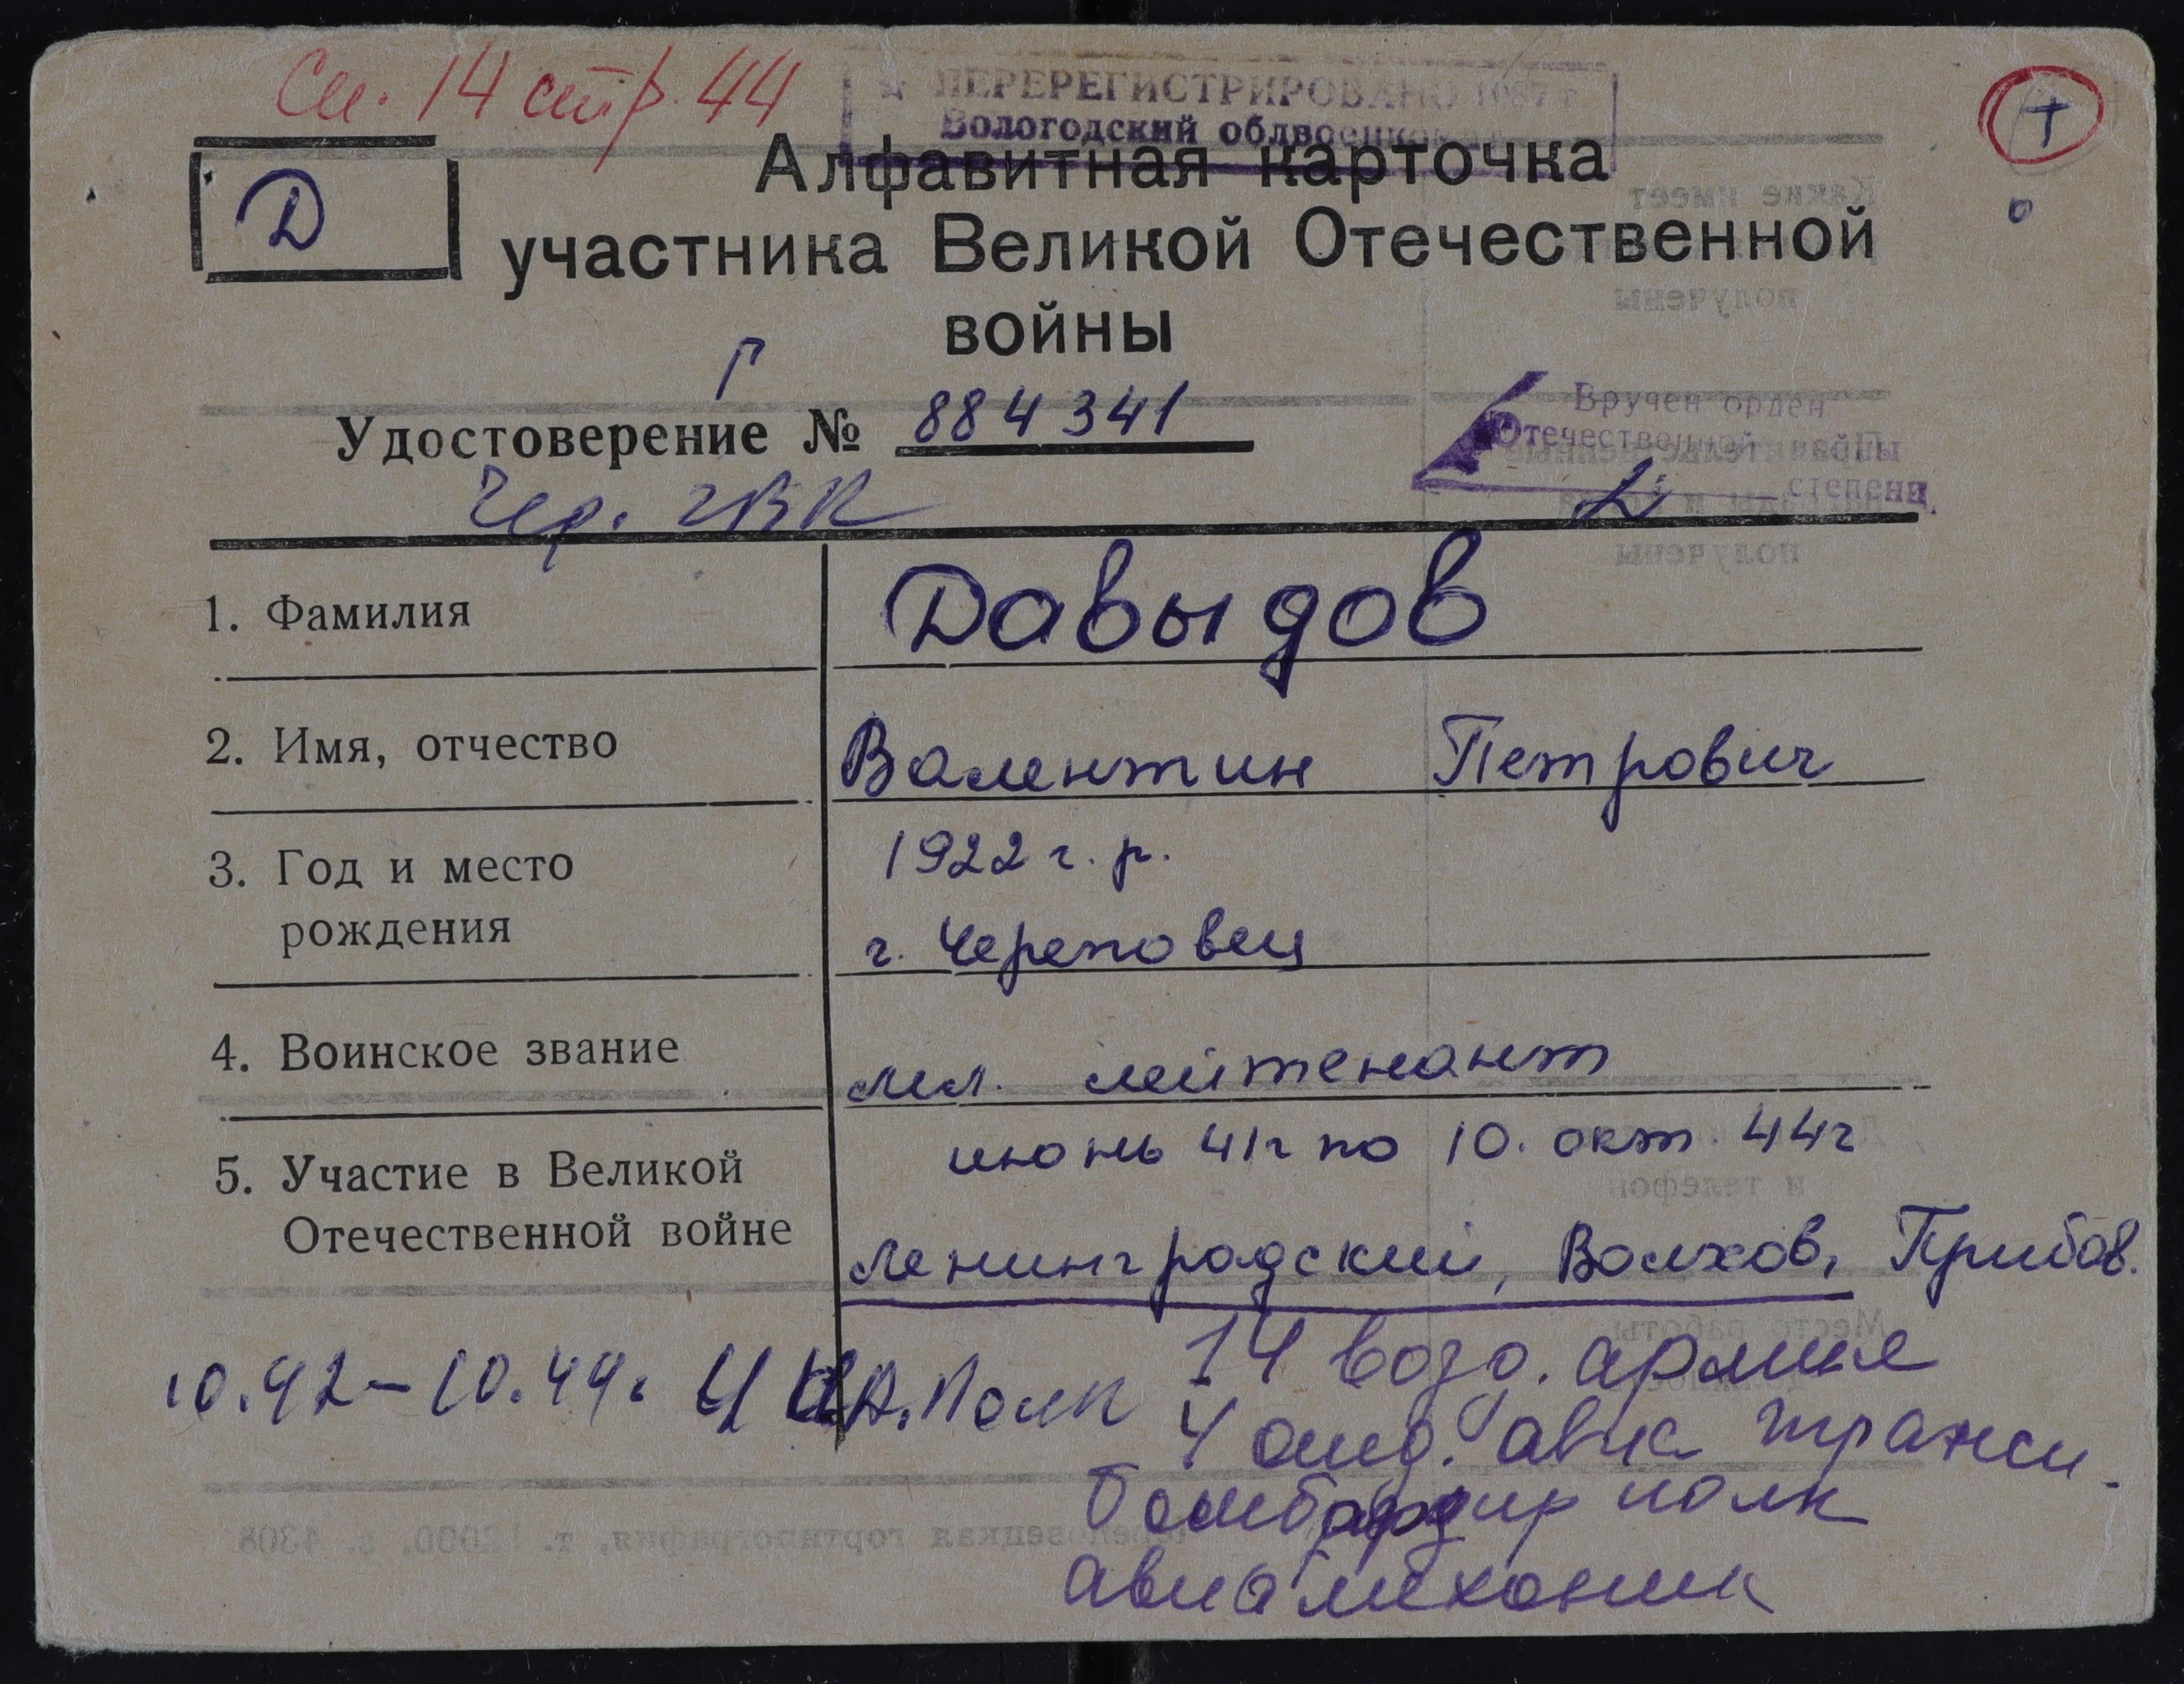 Сп. 14 стр. 44
ПЕРЕРЕГИСТРИРОВАНО 1987 г.
Вологодский облвоенкомат
Т
Д
Алфавитная карточка
участника Великой Отечественной
войны
Г
Удостоверение № 884341
Вручен орден
Отечественной войны
2 степени
Чер. ГВК
1. Фамилия Давыдов
2. Имя, отчество Валентин Петрович
3. Год и место 1922 г. р.
рождения г. Череповец
4. Воинское звание мл. лейтенант
5. Участие в Великой июнь 41г по 10. окт. 44г
Отечественной войне Ленинградский, Волхов, Прибов.
14 возд. армия
10.42-10.44. 4 полк
4 отд. авиа трансп.
бомбардир полк
авиамеханик